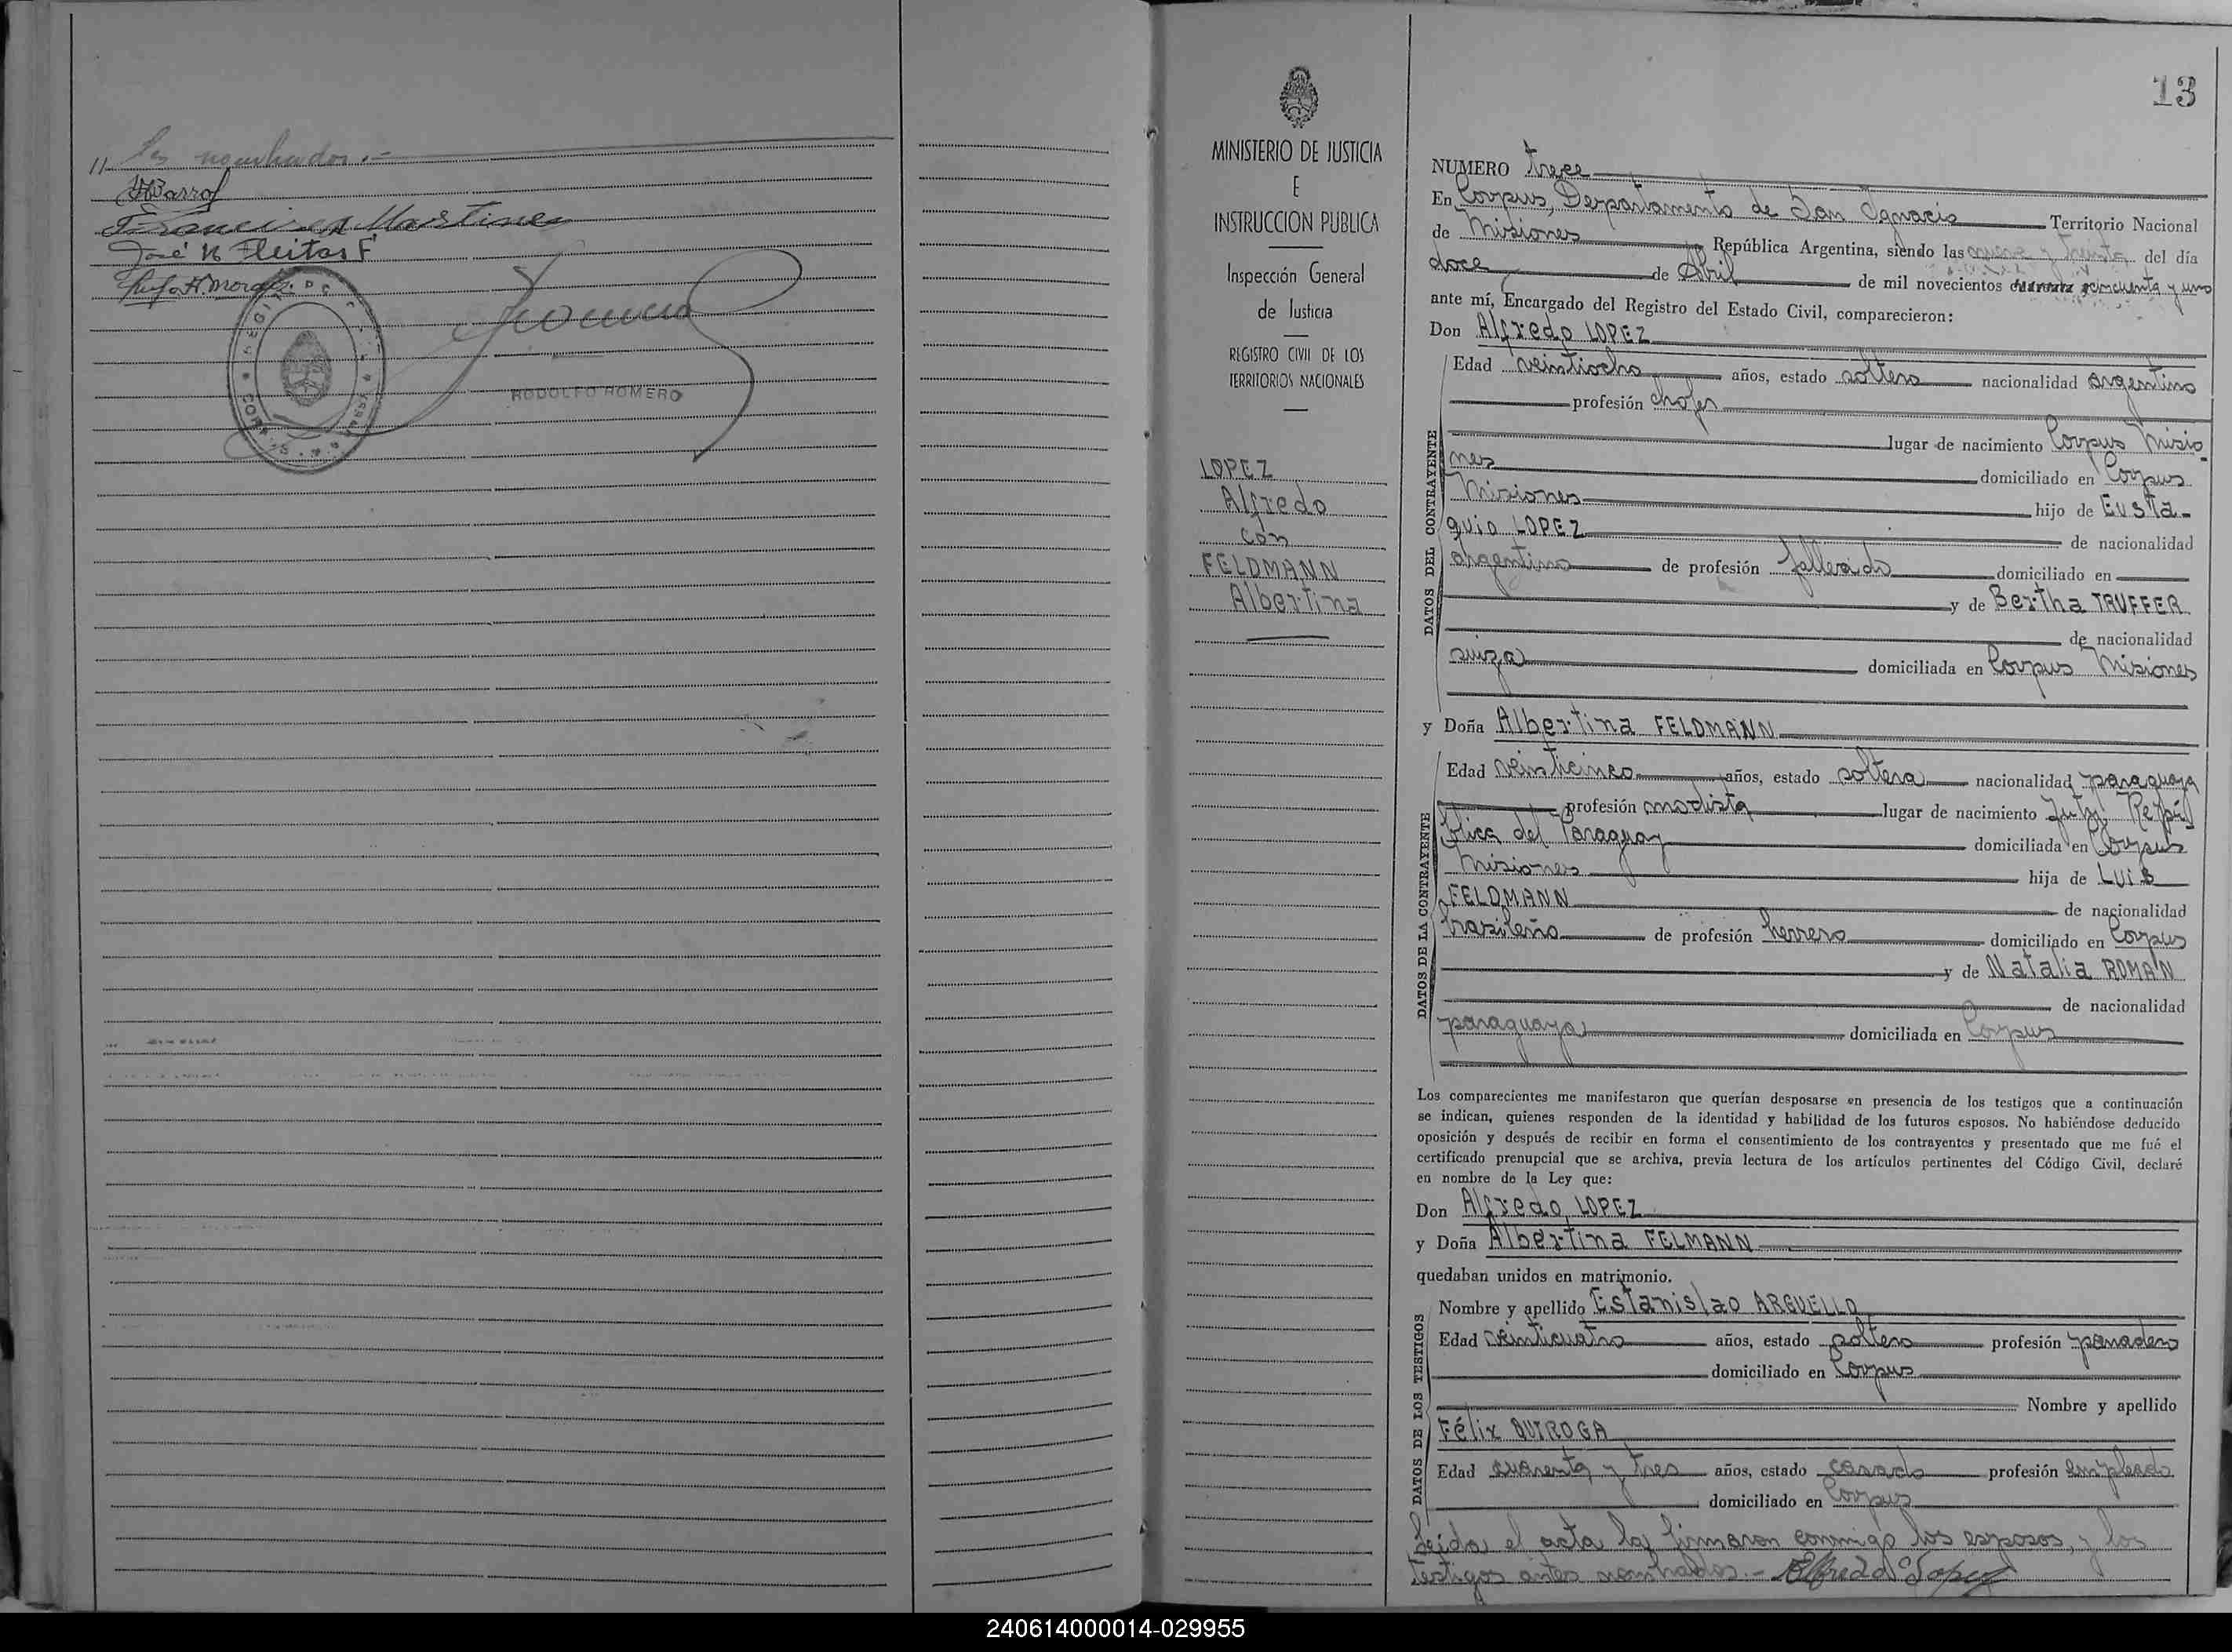 // los nombrados.-
HBarrof
Francisco Martinez
José N Fleitas F
RODOLFO ROMERO
13
MINISTERIO DE JUSTICIA
E
INSTRUCCION PUBLICA
Inspección General
de Justicia
REGISTRO CIVIL DE LOS
TERRITORIOS NACIONALES
LOPEZ
Alfredo
con
FELDMANN
Albertina
NUMERO trece
En Corpus, Departamento de San Ignacio Territorio Nacional
de Misiones República Argentina, siendo las nueve y treinta del día
doce de Abril de mil novecientos cincuenta y uno
ante mí, Encargado del Registro del Estado Civil, comparecieron:
Don Alfredo LOPEZ
DATOS DEL CONTRAYENTE
Edad veintiocho años, estado soltero nacionalidad argentino
profesión chofer
lugar de nacimiento Corpus Misio
nes domiciliado en Corpus
Misiones hijo de Eusta-
quio LOPEZ de nacionalidad
argentino de profesión fallecido domiciliado en
y de Bertha TRUFFER
de nacionalidad
suiza domiciliada en Corpus Misiones
y Doña Albertina FELDMANN
DATOS DE LA CONTRAYENTE
Edad veinticinco años, estado soltera nacionalidad paraguaya
profesión modista lugar de nacimiento Yuty Repú
blica del Paraguay domiciliada en Corpus
Misiones hija de Luis
FELDMANN de nacionalidad
brasileño de profesión herrero domiciliado en Corpus
y de Natalia ROMAN
de nacionalidad
paraguaya domiciliada en Corpus
Los comparecientes me manifestaron que querían desposarse en presencia de los testigos que a continuación
se indican, quienes responden de la identidad y habilidad de los futuros esposos. No habiéndose deducido
oposición y después de recibir en forma el consentimiento de los contrayentes y presentado que me fué el
certificado prenupcial que se archiva, previa lectura de los artículos pertinentes del Código Civil, declaré
en nombre de la Ley que:
Don Alfredo LOPEZ
y Doña Albertina FELMANN
quedaban unidos en matrimonio.
DATOS DE LOS TESTIGOS
Nombre y apellido Estanislao ARGUELLO
Edad veinticuatro años, estado soltero profesión panadero
domiciliado en Corpus
Nombre y apellido
Félix QUIROGA
Edad cuarenta y tres años, estado casado profesión empleado
domiciliado en Corpus
Leida el acta la firmaron conmigo los esposos, y los
testigos antes nombrados.- Alfredo Lopez
240614000014-029955